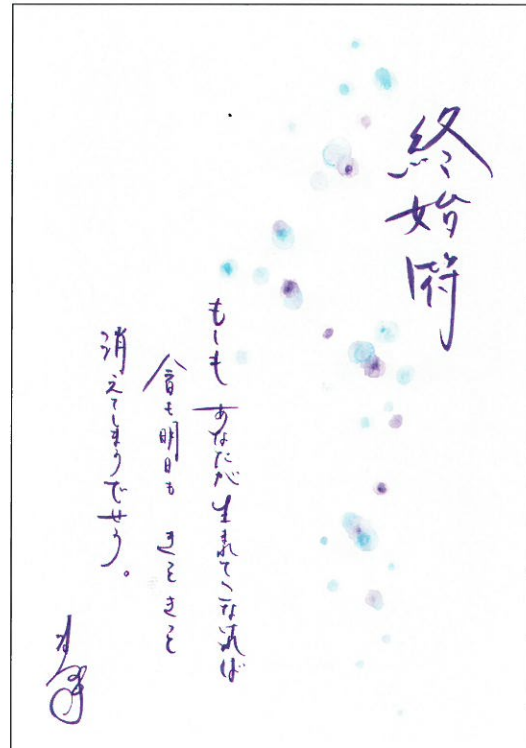 終始符
もしも あなたが 生れてこなければ
明日も きっときっと
消えてしまうでせう。